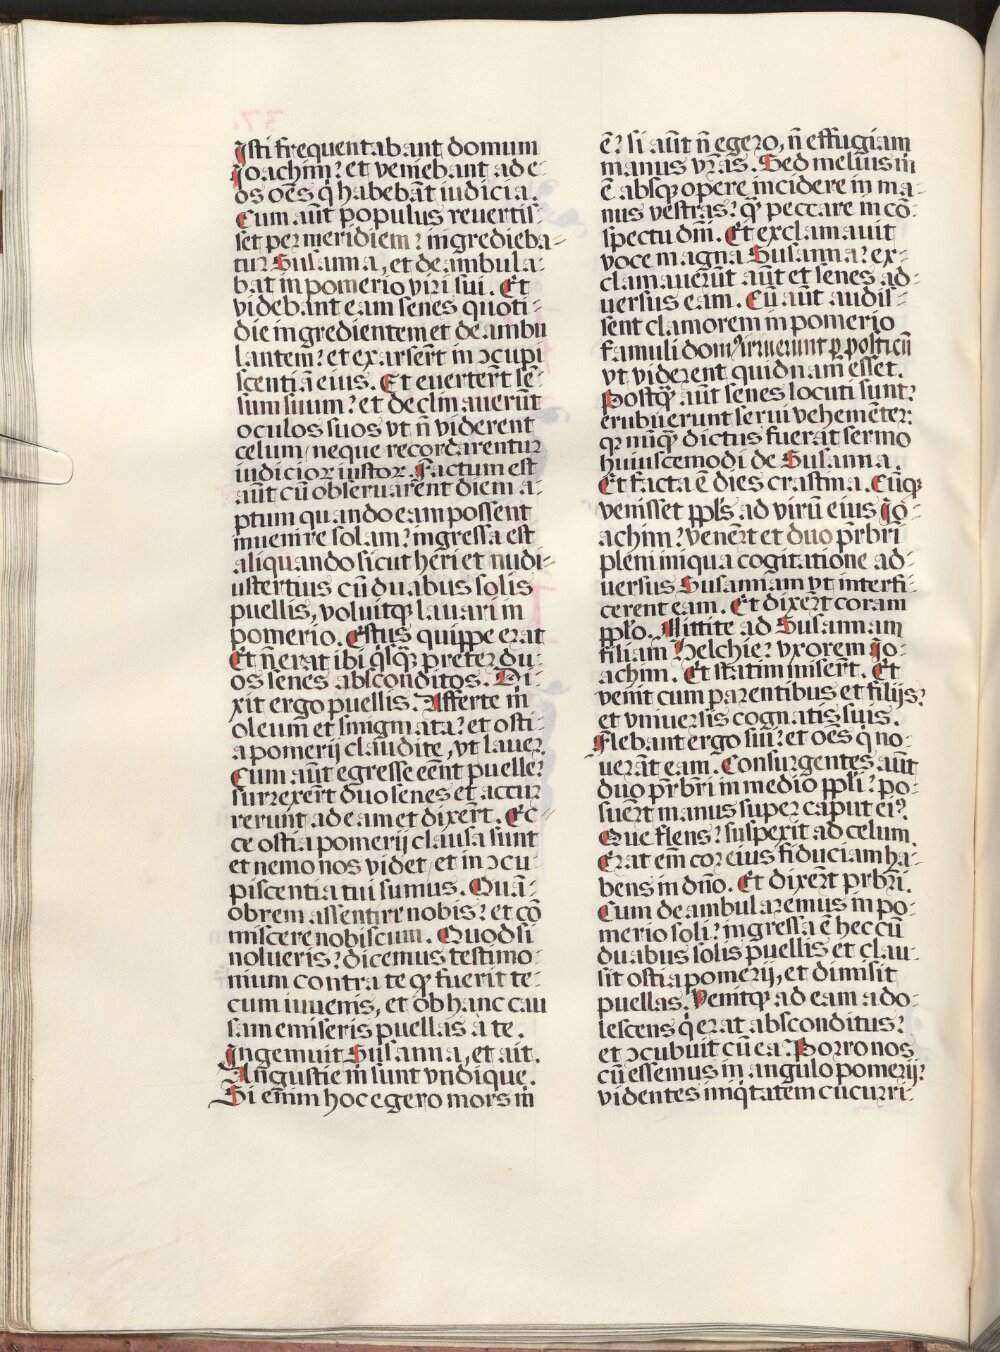 Isti frequentabant domum
Joachim? et veniebant ad e-
os oēs q̄ habebāt iudicia.
Cum aūt populus revertis-
set per meridiem? ingredieba-
tur Susanna, et deambula-
bat in pomerio viri sui. Et
videbant eam senes quoti-
die ingredientem et deambu
lantem? et exarserūt in ɔcupi
scentiā eius. Et everterūt sē-
sum suum? et declinaverūt
oculos suos vt ñ viderent
celum, neque recordarentur
iudicior iustor. Factum est
aūt cū observarent diem a-
ptum quando eam possent
invenire solam? ingressa est
aliquando sicut heri et nudi-
ustertius cū duabus solis
puellis, voluitq lavari in
pomerio. Estus quippe erat
Et ñ erat ibi q̄sq̄ preter du-
os senes absconditos. Di-
xit ergo puellis. Afferte m̄
oleum et smigmata? et osti-
a pomerij claudite, vt laver.
Cum aūt egresse eēnt puelle?
surrexerūt duo senes et accur
rerunt ad eam et dixerūt. Ec-
ce ostia pomerij clausa sunt
et nemo nos videt, et in ɔcu-
piscentia tui sumus. Quā-
obrem assentire nobis? et cō
miscere nobiscum. Quod si
nolueris? dicemus testimo-
nium contra te q̄ fuerit te-
cum iuvenis, et ob hanc cau
sam emiseris puellas a te.
Ingemuit Susanna, et ait.
Angustie m̄ sunt undique.
Si enim hoc egero mors m̄
ē? si aūt ñ egero, ñ effugiam
manus vr̄as. Sed melius m̄
ē absq opere incidere in ma-
nus vestras? q̄ peccare in cō-
spectu dn̄i. Et exclamavit
voce magna Susanna? ex-
clamaverūt aūt et senes ad-
versus eam. Cū aūt audis-
sent clamorem in pomerio
famuli dom⁹ irruerunt p posticū
vt viderent quidnam esset.
Postq̄ aūt senes locuti sunt?
erubuerunt servi vehemēter:
qr nūq̄ dictus fuerat sermo
huiuscemodi de Susanna.
Et facta ē dies crastina. Cūq
venisset ppl̄s ad virū eius Jo-
achim? venerūt et duo pr̄bri
pleni iniqua cogitatione ad-
versus Susannam vt interfi-
cerent eam. Et dixerūt coram
ppl̄o. Mittite ad Susannam
filiam Helchie? vxorem Jo-
achim. Et statim miserūt. Et
venit cum parentibus et filijs?
et vniversis cognatis suis.
Flebant ergo sui? et oēs q̄ no-
verāt eam. Consurgentes aūt
duo pr̄bri in medio ppl̄i? po-
suerūt manus super caput ei⁹
Que flens? suspexit ad celum.
Erat em̄ cor eius fiduciam ha-
bens in dn̄o. Et dixerūt pr̄bri.
Cum deambularemus in po-
merio soli? ingressa ē hec cū
duabus solis puellis et clau-
sit ostia pomerij, et dimisit
puellas. Venitq ad eam ado-
lescens q̄ erat absconditus?
et ɔcubuit cū ea. Porro nos
cū essemus in angulo pomerij?
videntes iniq̄tatem cucurri-